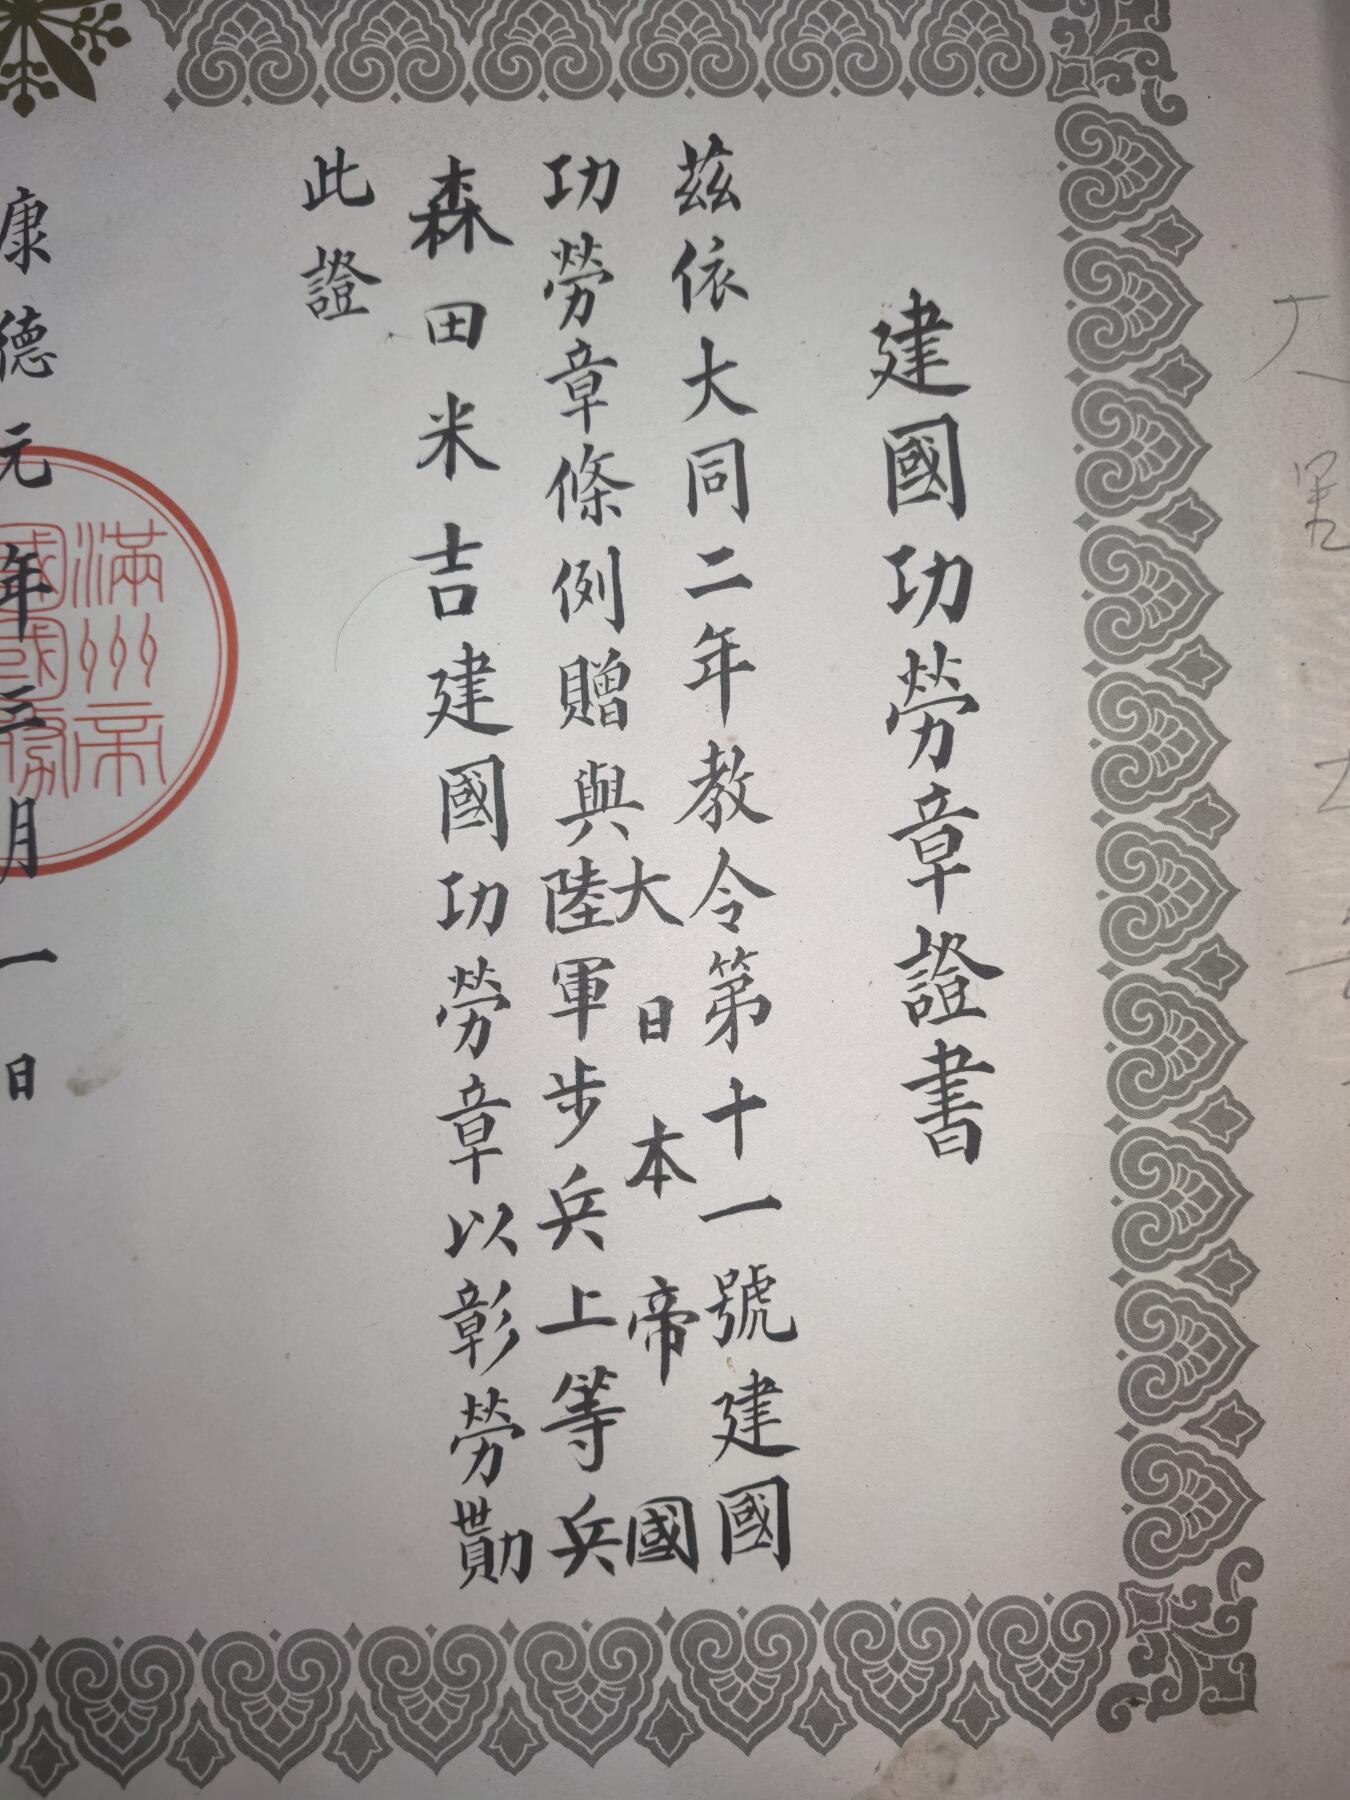 建國功勞章證書
茲依大同二年教令第十一號建國
功勞章條例贈與大日本帝國陸軍步兵上等兵
森田米吉建國功勞章以彰勞勩
此證
康德元年三月一日
滿州帝
國國務